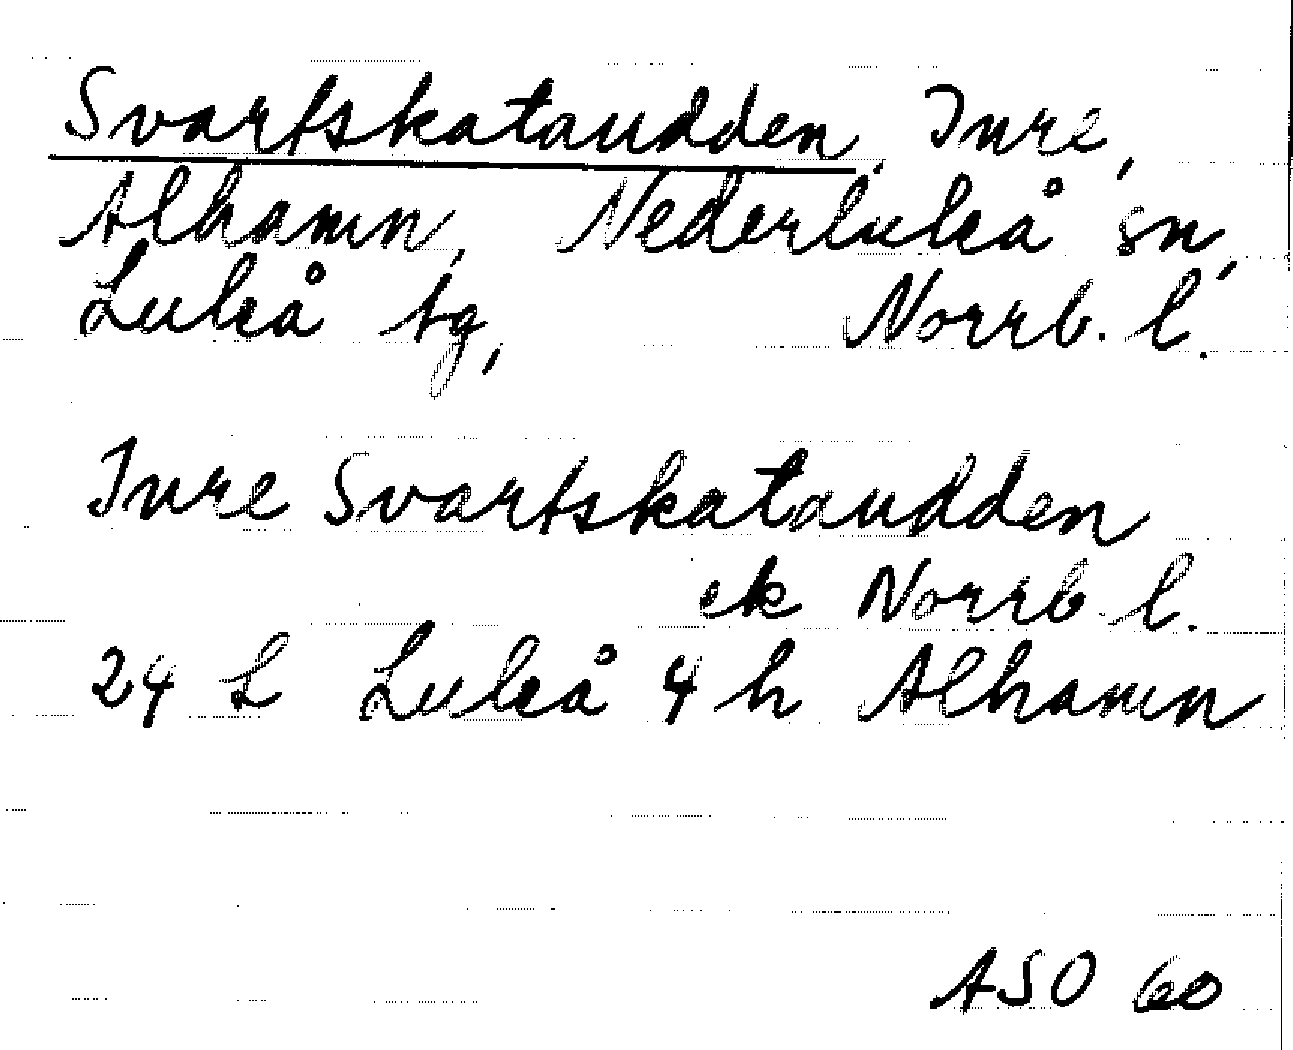 Svartskataudden, Inre,
Alhamn, Nederluleå sn,
Luleå tg, Norrb. l.
Inre Svartskataudden
ek Norrb. l.
24 L Luleå 4 h Alhamn
ASO 60